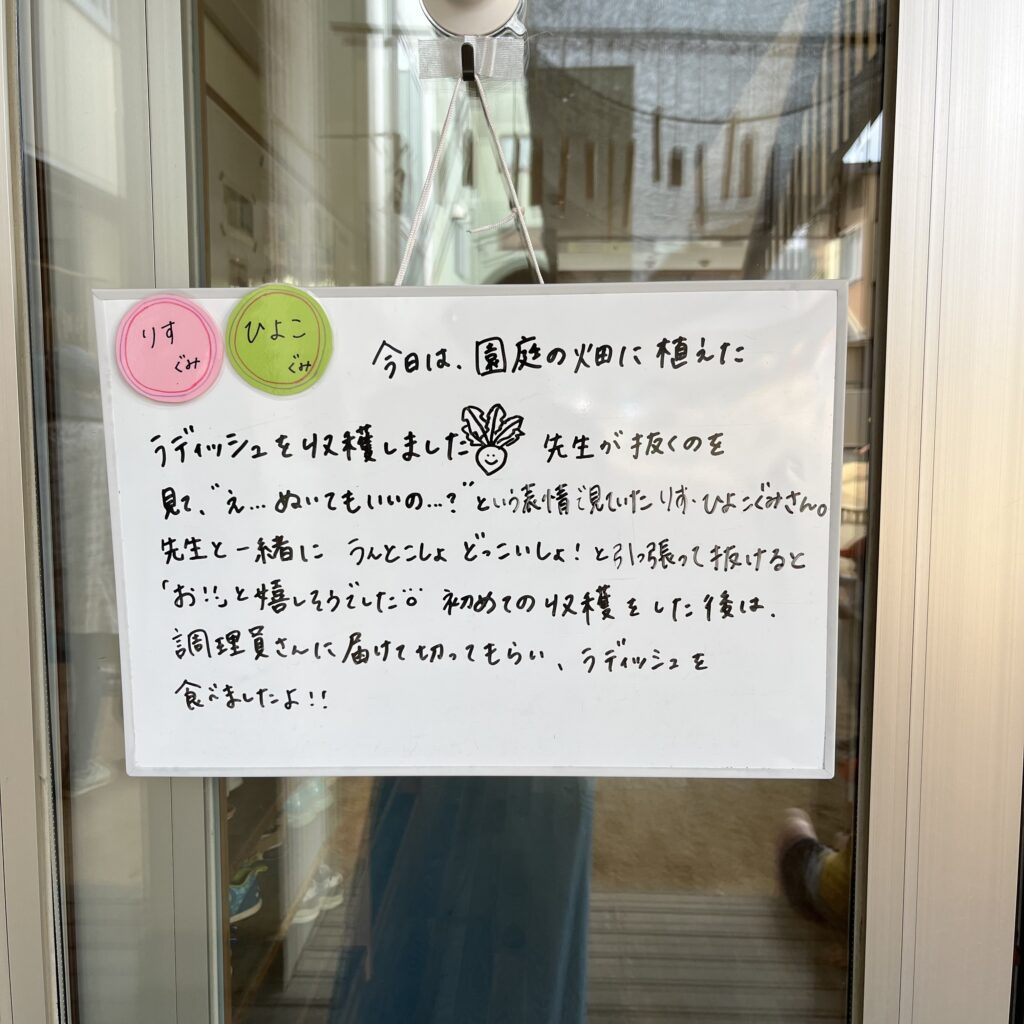 りす
ぐみ
ひよこ
ぐみ
今日は、園庭の畑に植えた
ラディッシュを収穫しました 先生が抜くのを
見て、“え…ぬいてもいいの…?”という表情で見ていたりす・ひよこぐみさん。
先生と一緒に うんとこしょ どっこいしょ!と引っ張って抜けると
「お!!」と嬉しそうでした 初めての収穫をした後は、
調理員さんに届けて切ってもらい、ラディッシュを
食べましたよ!!